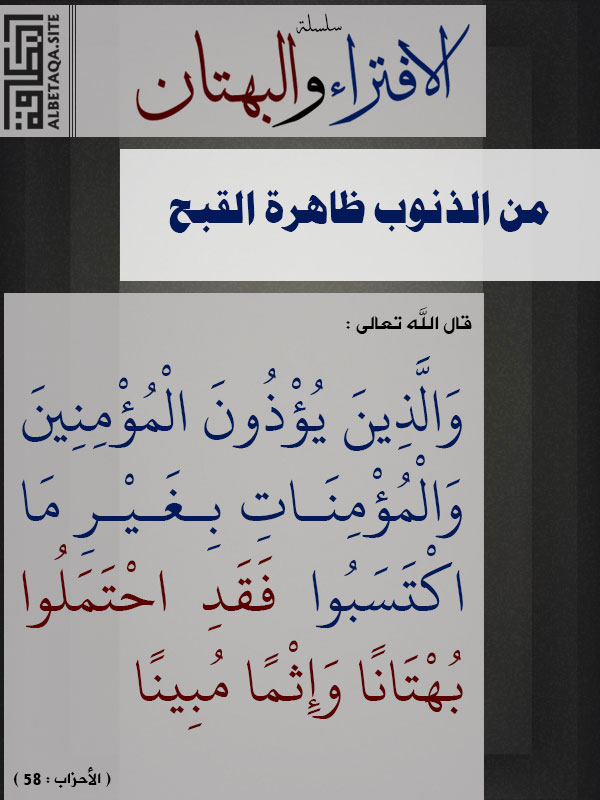 سلسلة
الافتراء والبهتان
البطاقة
ALBETAQA.SITE
من الذنوب ظاهرة القبح
قال الله تعالى :
وَالَّذِينَ يُؤْذُونَ الْمُؤْمِنِينَ
وَالْمُؤْمِنَـاتِ بِـغَـيْـرِ مَا
اكْتَسَبُوا فَقَدِ احْتَمَلُوا
بُهْتَانًا وَإِثْمًا مُبِينًا
( الأحزاب : 58 )